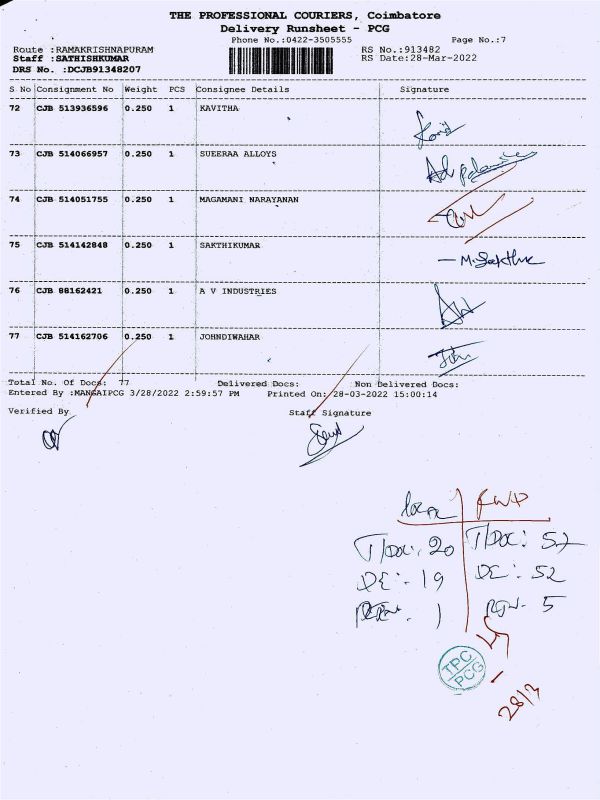 THE PROFESSIONAL COURIERS, Coimbatore
Delivery Runsheet - PCG
Phone No.:0422-3505555 Page No.:7
Route :RAMAKRISHNAPURAM RS No.:913482
Staff :SATHISHKUMAR RS Date:28-Mar-2022
DRS No. :DCJB91348207
S No Consignment No Weight PCS Consignee Details Signature
72 CJB 513936596 0.250 1 KAVITHA
73 CJB 514066957 0.250 1 SUEERAA ALLOYS
74 CJB 514051755 0.250 1 MAGAMANI NARAYANAN
75 CJB 514142848 0.250 1 SAKTHIKUMAR
76 CJB 88162421 0.250 1 A V INDUSTRIES
77 CJB 514162706 0.250 1 JOHNDIWAHAR
Total No. Of Docs: 77 Delivered Docs: Non Delivered Docs:
Entered By :MANGAIPCG 3/28/2022 2:59:57 PM Printed On: 28-03-2022 15:00:14
Verified By Staff Signature
T/Doc: 20 T/Doc: 57
DE:- 19 DE: 52
1 RTN- 5
TPC
PCG
28/3